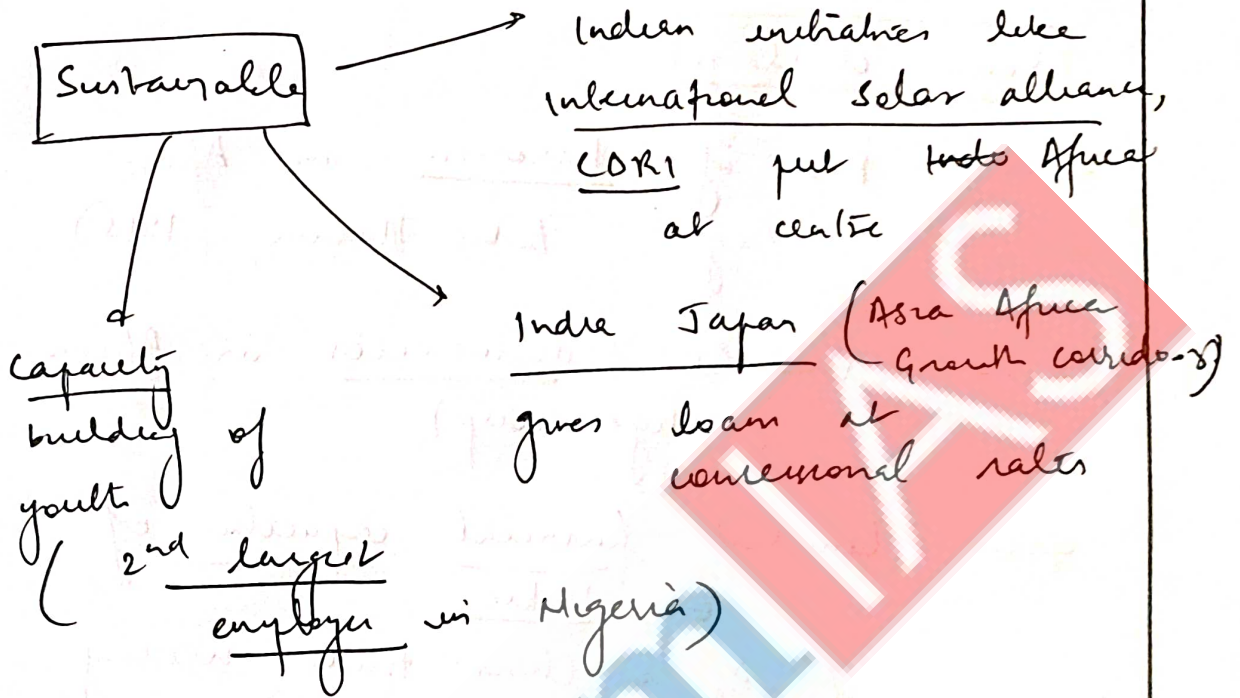 Sustainable
Indian initiatives like
International Solar alliance,
CDRI put Indo Africa
at centre
India Japan (Asia Africa
Growth corridor)
gives loans at
concessional rates
Capacity
building of
youth
(2nd largest
employer in Nigeria)
IAS